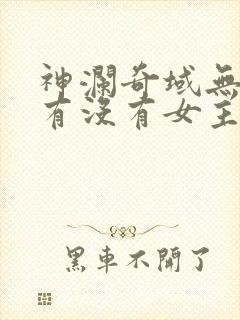 神瀾奇域無
有沒有女主
黑車不開了